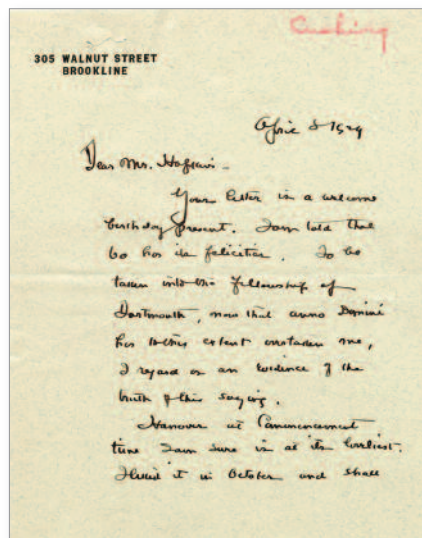 Cushing
305 WALNUT STREET
BROOKLINE
April 8 1929
Dear Mr. Hopkins -
Your letter is a welcome
birthday present. I am told that
60 has its felicities. To be
taken into the fellowship of
Dartmouth, now that anno Domini
has to this extent overtaken me,
I regard as an evidence of the
truth of this saying.
Hanover at Commencement
time I am sure is at its loveliest.
I liked it in October and shall